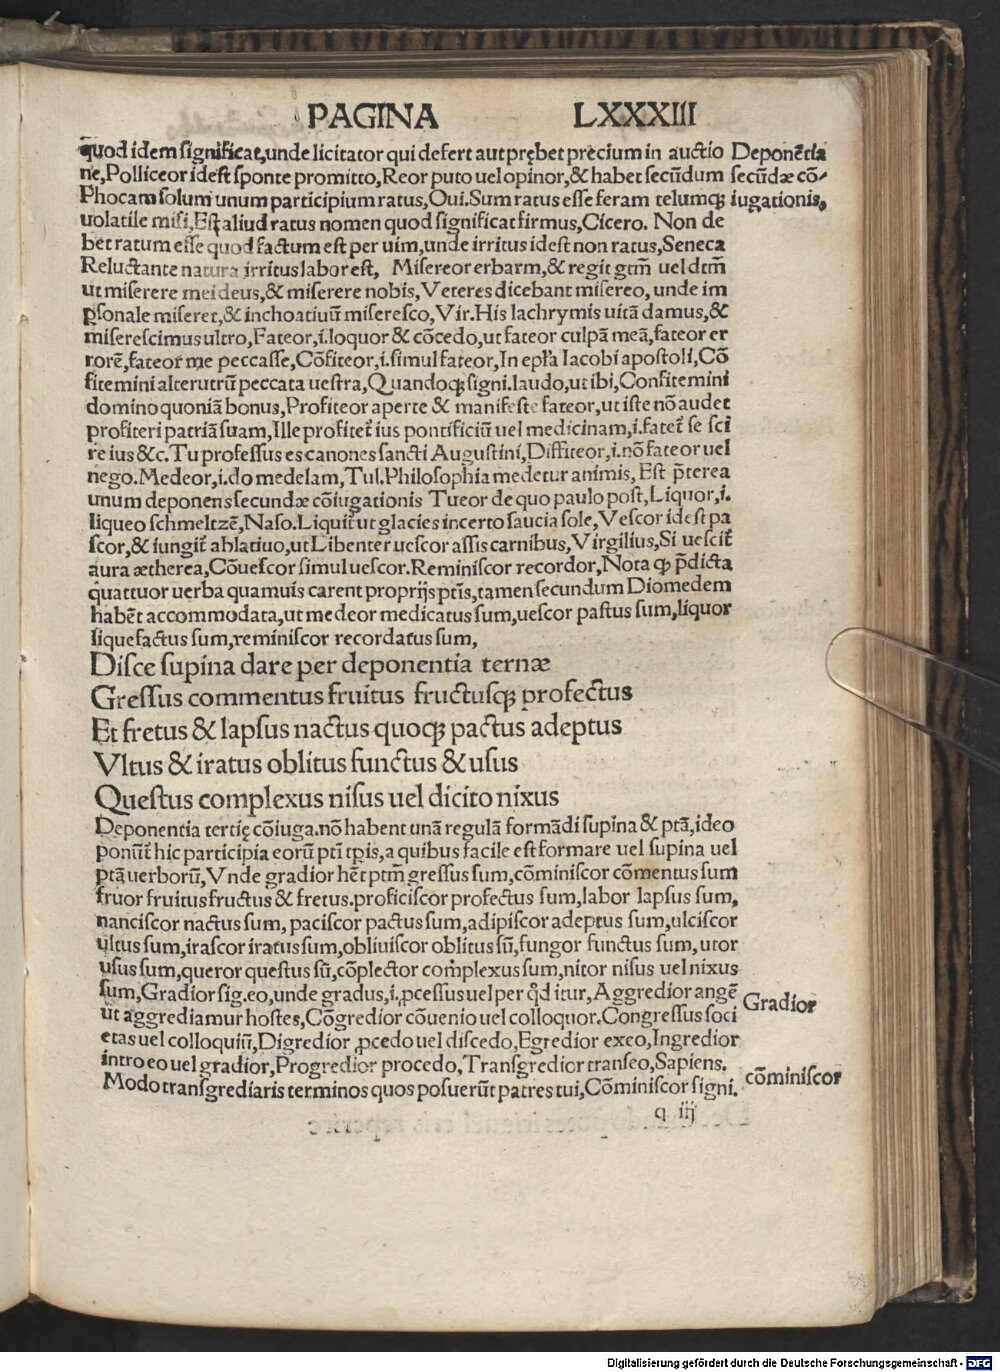 PAGINA LXXXIII
quod idem significat,unde licitator qui defert aut prębet precium in auctio
ne,Polliceor idest sponte promitto,Reor puto uel opinor,& habet secũdum
Phocam solum unum participium ratus,Oui.Sum ratus esse feram telumqꝫ
uolatile misi,Estqꝫ aliud ratus nomen quod significat firmus,Cicero. Non de
bet ratum esse quod factum est per uim,unde irritus idest non ratus,Seneca
Reluctante natura irritus labor est, Misereor erbarm,& regit gtm̃ uel dtm̃
ut miserere mei deus,& miserere nobis,Veteres dicebant misereo, unde im
ꝑsonale miseret,& inchoatiuũ miseresco,Vir.His lachrymis uitã damus,&
miserescimus ultro,Fateor,i.loquor & cõcedo,ut fateor culpã meã,fateor er
rorẽ,fateor me peccasse,Cõfiteor,i.simul fateor,In epl̃a Iacobi apostoli,Cõ
fitemini alterutrũ peccata uestra,Quandoqꝫ signi.laudo,ut ibi,Confitemini
domino quoniã bonus,Profiteor aperte & manifeste fateor,ut iste nõ audet
profiteri patriã suam,Ille profitet̃ ius pontificiũ uel medicinam,i.fatet̃ se sci
re ius &c.Tu professus es canones sancti Augustini,Diffiteor,i.nõ fateor uel
nego.Medeor,i.do medelam,Tul.Philosophia medetur animis, Est p̃terea
unum deponens secundæ cõiugationis Tueor de quo paulo post,Liquor,i.
liqueo schmeltzẽ,Naso.Liquit̃ ut glacies incerto saucia sole,Vescor idest pa
scor,& iungit̃ ablatiuo,ut Libenter uescor assis carnibus,Virgilius,Si uescit̃
aura ætherea,Cõuescor simul uescor.Reminiscor recordor,Nota ꝙ p̃dicta
quattuor uerba quamuis carent proprijs ptĩs,tamen secundum Diomedem
habẽt accommodata,ut medeor medicatus sum,uescor pastus sum,liquor
liquefactus sum,reminiscor recordatus sum,
Disce supina dare per deponentia ternæ
Gressus commentus fruitus fructusqꝫ profectus
Et fretus & lapsus nactus quoqꝫ pactus adeptus
Vltus & iratus oblitus functus & usus
Questus complexus nisus uel dicito nixus
Deponentia tertię cõiuga.nõ habent unã regulã formãdi supina & ptã,ideo
ponũt̃ hic participia eorũ ptĩ tp̃is,a quibus facile est formare uel supina uel
ptã uerborũ,Vnde gradior hẽt ptm̃ gressus sum,cõminiscor cõmentus sum
fruor fruitus fructus & fretus.proficiscor profectus sum,labor lapsus sum,
nanciscor nactus sum, paciscor pactus sum,adipiscor adeptus sum,ulciscor
ultus sum,irascor iratus sum,obliuiscor oblitus sũ,fungor functus sum,utor
usus sum,queror questus sũ,cõplector complexus sum,nitor nisus uel nixus
sum,Gradior sig.eo,unde gradus,i.ꝓcessus uel per qd̃ itur,Aggredior angẽ
ut aggrediamur hostes,Cõgredior cõuenio uel colloquor.Congressus soci
etas uel colloquiũ,Digredior ꝓcedo uel discedo,Egredior exeo,Ingredior
intro eo uel gradior,Progredior procedo,Transgredior transeo,Sapiens.
Modo transgrediaris terminos quos posuerũt patres tui,Cõminiscor signi.
q iij
Deponẽtia
secũdæ cõ-
iugationis,
Gradior
cõminiscor
Digitalisierung gefördert durch die Deutsche Forschungsgemeinschaft - DFG